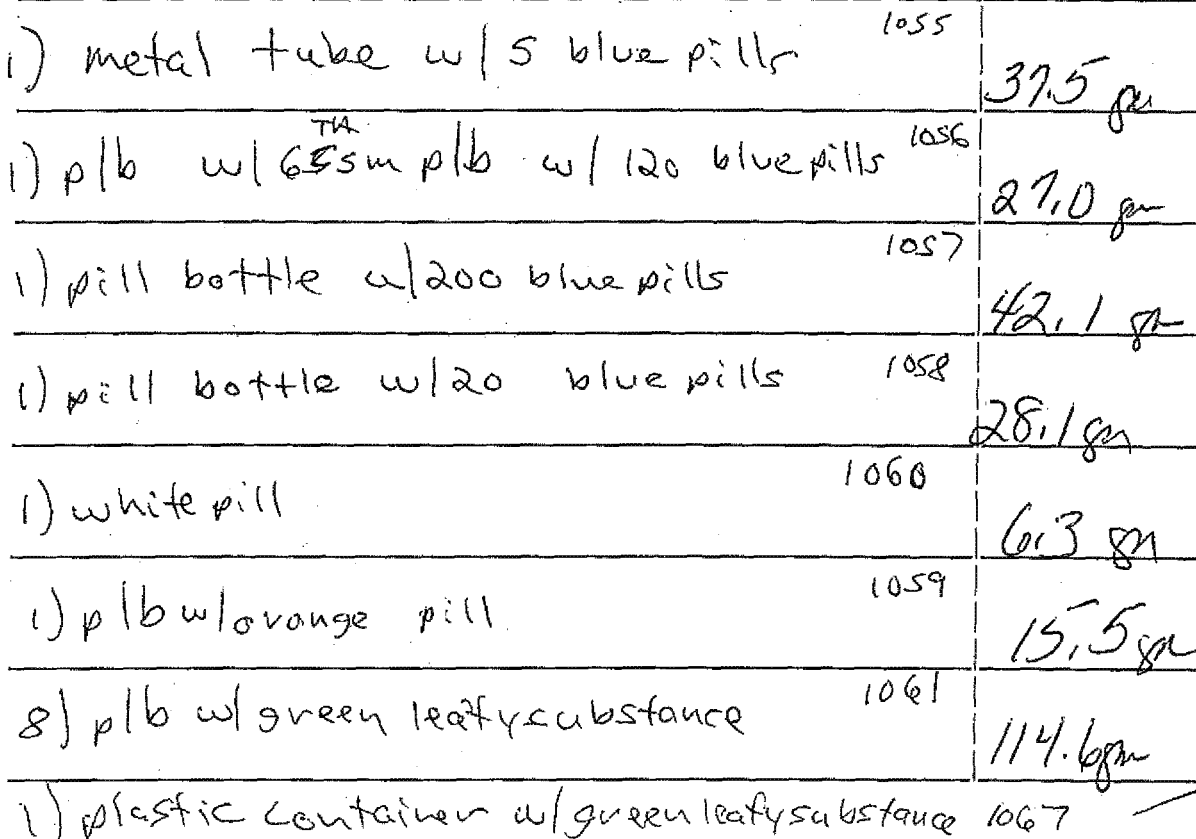 1) metal tube w/ 5 blue pills 1055 37.5 gm
TH
1) plb w/ 6 sm plb w/ 120 blue pills 1056 27.0 gm
1) pill bottle w/200 blue pills 1057 42.1 gm
1) pill bottle w/20 blue pills 1058 28.1 gm
1) white pill 1060 6.3 gm
1) plb w/orange pill 1059 15.5 gm
8) plb w/ green leafy substance 1061 114.6 gm
1) plastic container w/ green leafy substance 1067